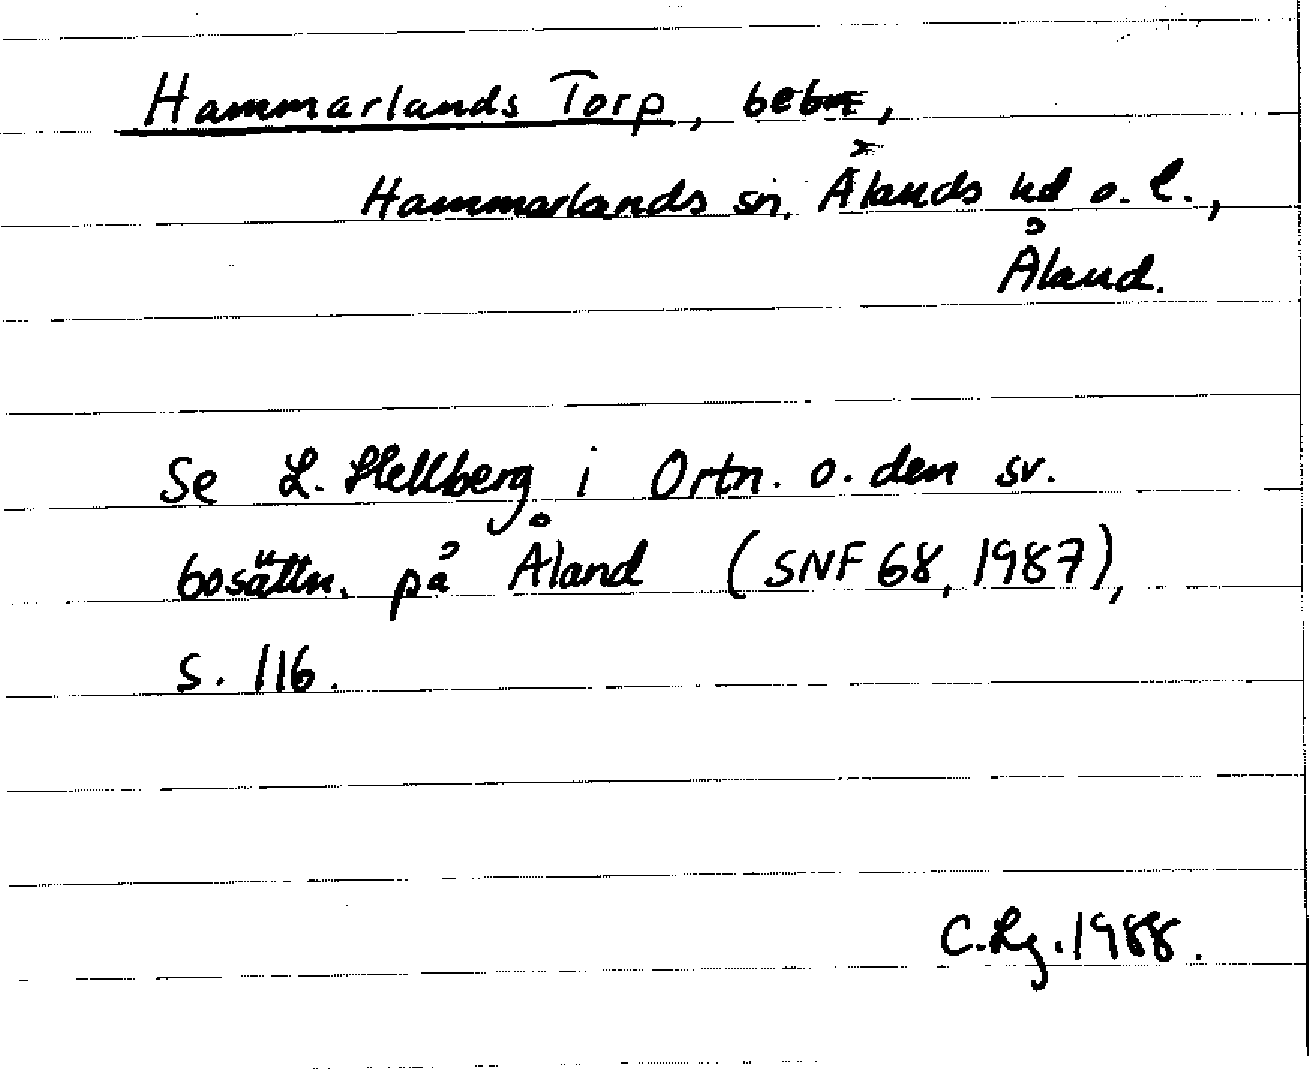 Hammarlands Torp, beb.,
Hammarlands sn, Ålands hd o. l.,
Åland.
Se L. Hellberg i Ortn. o. den sv.
bosättn. på Åland (SNF 68, 1987),
s. 116.
C.Lg. 1988.